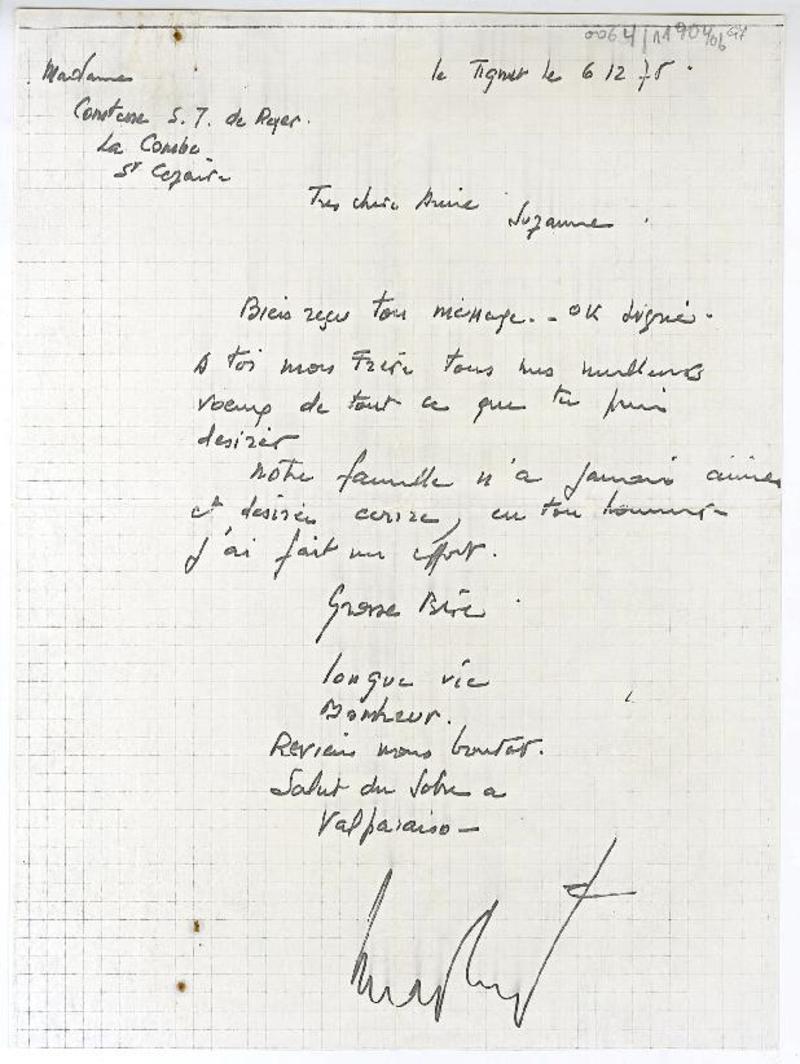 0064/11904/06
Madame
le Tignet le 6 12 75.
Comtesse S. T. de
La Combe
St Cezaire
Tres chere Amie
Suzanne.
Bien reçu ton message. - OK signé.
A toi mon Frère tous mes meilleurs
voeux de tout ce que tu puis
desirer
Notre famille n'a jamais aimée
et desirée ecrire, en ton honneur
j'ai fait un effort.
Grosse Bise.
longue vie
Bonheur.
Reviens nous bientot.
Salut du Sabre a
Valparaiso -